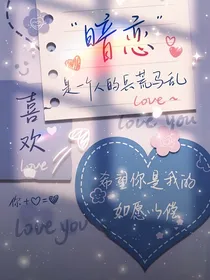 “暗恋”
是一个人的兵荒马乱
love~
喜
欢
love
love you
你+♡=♡
love you
希望你是我的
如愿以偿